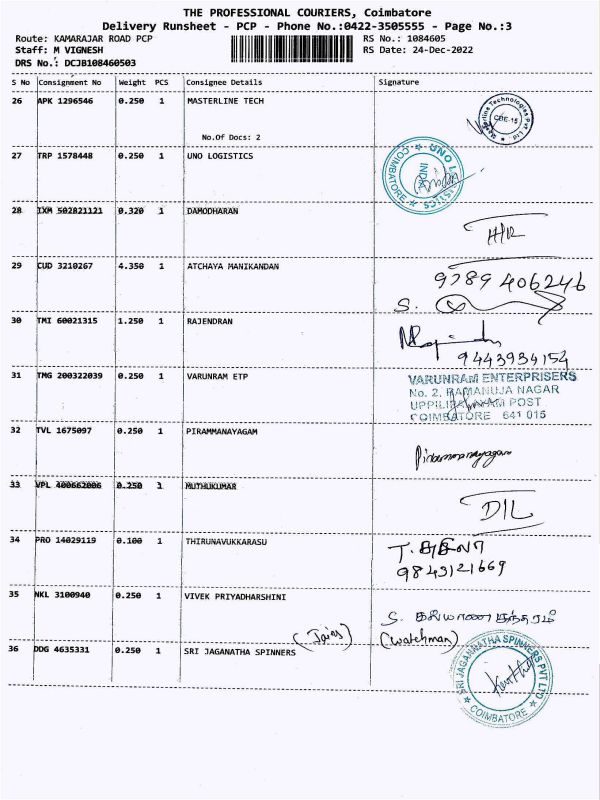 THE PROFESSIONAL COURIERS, Coimbatore
Delivery Runsheet - PCP - Phone No.:0422-3505555 - Page No.:3
Route: KAMARAJAR ROAD PCP RS No.: 1084605
Staff: M VIGNESH RS Date: 24-Dec-2022
DRS No.: DCJB108460503
S No Consignment No Weight PCS Consignee Details Signature
26 APK 1296546 0.250 1 MASTERLINE TECH
Masterline Technologies Pvt Ltd
CBE-15
No.Of Docs: 2
27 TRP 1578448 0.250 1 UNO LOGISTICS
UNO LOGISTICS
INDIA
COIMBATORE
28 IXM 502821121 0.320 1 DAMODHARAN
H/R
29 CUD 3210267 4.350 1 ATCHAYA MANIKANDAN
9789 406246
S.
30 TMI 60021315 1.250 1 RAJENDRAN
9443934154
31 TMG 200322039 0.250 1 VARUNRAM ETP
VARUNRAM ENTERPRISERS
No. 2, RAMANUJA NAGAR
UPPILIPALAYAM POST
COIMBATORE 641 015
32 TVL 1675097 0.250 1 PIRAMMANAYAGAM
Pirammanayagam
33 VPL 400662006 0.250 1 MUTHUKUMAR
D/L
34 PRO 14029119 0.100 1 THIRUNAVUKKARASU
T.
9843121669
35 NKL 3100940 0.250 1 VIVEK PRIYADHARSHINI
S. கல்யாண சுந்தரம்
(Watchman)
36 DDG 4635331 0.250 1 SRI JAGANATHA SPINNERS
SRI JAGANNATHA SPINNERS PVT LTD
COIMBATORE